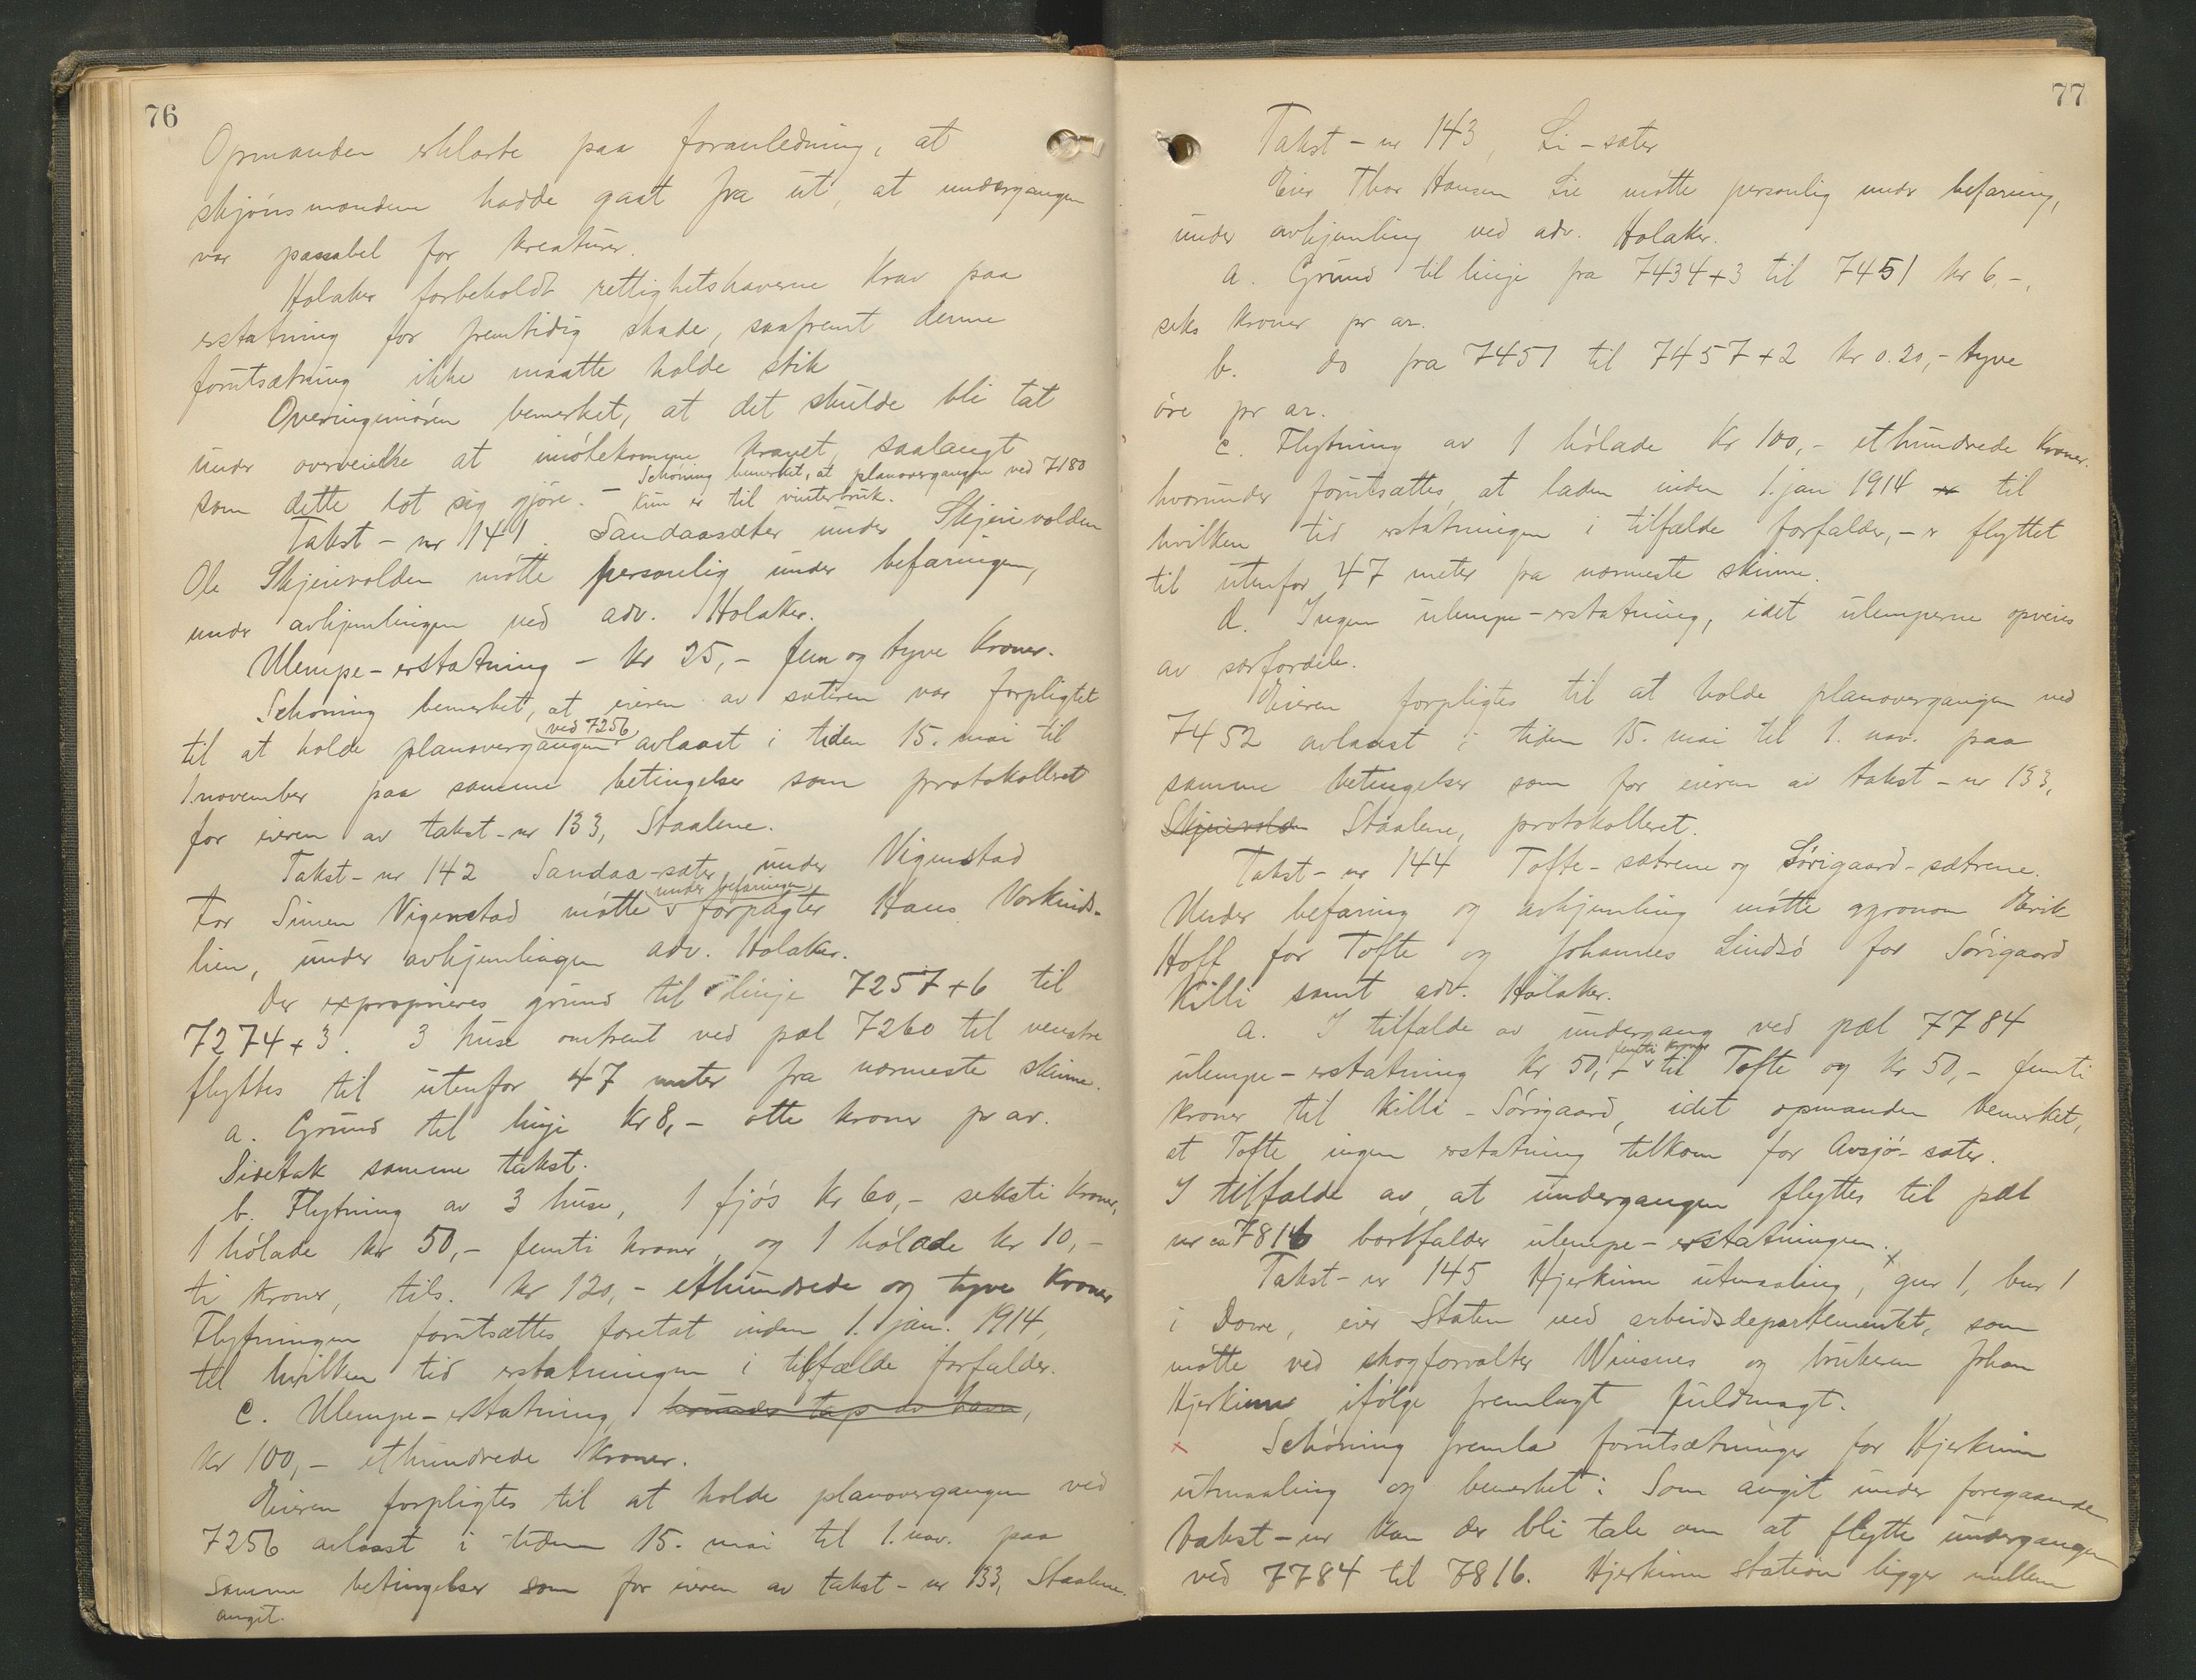 76
Opmanden erklærte paa foranledning, at
skjønsmændene hadde gaat fra ut, at undergangen
var passabel for kreaturer.
Holaker forbeholdt rettighetshaverne krav paa
erstatning for fremtidig skade, saafremt denne
forutsætning ikke maatte holde stik
Overingeniøren bemerket, at det skulde bli tat
under overveielse at imøtekomme kravet, saalangt
som dette lot sig gjøre. – Schøning bemerket, at planovergangen ved 7180
kun er til vinterbruk.
Takst-nr 141. Sandaasæter under Skjeivolden
Ole Skjeivolden møtte personlig under befaringen,
under avhjemlingen ved adv. Holaker.
Ulempe-erstatning – kr 25,- fem og tyve kroner.
Schøning bemerket, at eieren av sæteren var forpligtet
til at holde planovergangen ved 7256 avlaast i tiden 15. mai til
1.november paa samme betingelser som protokolleret
for eieren av takst-nr 133, Staalene.
Takst-nr 142 Sandaa-sæter under Vigenstad
For Simen Vigenstad møtte under befaringen forpagter Hans Vorkinds-
lien, under avhjemlingen adv. Holaker.
Der exproprieres grund til linje 7257+6 til
7274+3. 3 huse omtrent ved pæl 7260 til venstre
flyttes til utenfor 47 meter fra nærmeste skinne.
a. Grund til linje kr 8,- otte kroner pr ar.
Sidetak samme takst.
b. Flytning av 3 huse, 1 fjøs kr 60,- seksti kroner,
1 hølade kr 50,- femti kroner, og 1 hølade kr 10,-
ti kroner, tils. kr 120,- ethundrede og tyve kroner
Flytningen forutsættes foretat inden 1. jan. 1914,
til hvilken tid erstatningen i tilfælde forfalder.
c. Ulempe-erstatning, herunder tap av havn,
kr 100,- ethundrede kroner.
Eieren forpligtes til at holde planovergangen ved
7256 avlaast i tiden 15. mai til 1. nov. paa
samme betingelser som for eieren av takst-nr 133, Staalene.
angit.
77
Takst-nr 143, Li-sæter
Eier Thor Hansen Lie møtte personlig under befaring,
under avhjemling ved adv. Holaker.
a. Grund til linje fra 7434+3 til 7451 kr 6,-,
seks kroner pr ar.
b. do fra 7451 til 7457+2 kr 0.20,- tyve
øre pr ar.
c. Flytning av 1 hølade kr 100,- ethundrede kroner.
hvorunder forutsættes, at laden inden 1. jan 1914 er til
hvilken tid erstatningen i tilfælde forfalder,- er flyttet
til utenfor 47 meter fra nærmeste skinne.
d. Ingen ulempe-erstatning, idet ulemperne opveies
av særfordele.
Eieren forpligtes til at holde planovergangen ved
7452 avlaast i tiden 15. mai til 1. nov. paa
samme betingelser som for eieren av takst-nr 133,
Skjeivolden Staalene, protokolleret.
Takst-nr 144 Tofte-sætrene og Sørigaard-sætrene.
Under befaring og avhjemling møtte agronom Erik
Hoff for Tofte og Johannes Lindsø for Sørigaard
Killi samt adv. Holaker.
a. I tilfælde av undergang ved pæl 7784
ulempe-erstatning kr 50,- femti kroner til Tofte og kr 50,- femti
kroner til Killi-Sørigaard, idet opmanden bemerket,
at Tofte ingen erstatning tilkom for Avsjø-sæter.
I tilfælde av, at undergangen flyttes til pæl
nr ca 7816 bortfalder ulempe-erstatningen.
Takst-nr 145 Hjerkinn utmaaling, x gnr 1, bnr 1
i Dovre, eier Staten ved arbeidsdepartementet, som
møtte ved skogforvalter Winsnes og brukeren Johan
Hjerkinn ifølge fremlagt fuldmagt.
x Schøning fremla forutsætninger for Hjerkinn
utmaaling og bemerket: Som angit under foregaaende
takst-nr kan der bli tale om at flytte undergangen
ved 7784 til 7816. Hjerkinn station ligger mellem